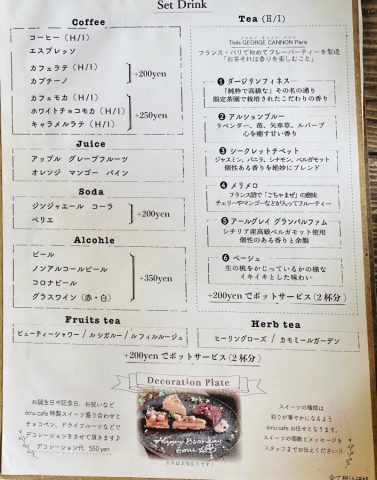 Set Drink
Coffee
コーヒー (H/I)
エスプレッソ
カフェラテ (H/I)
カプチーノ
+200yen
カフェモカ (H/I)
ホワイトチョコモカ (H/I)
キャラメルラテ (H/I)
+250yen
Juice
アップル グレープフルーツ
オレンジ マンゴー パイン
Soda
ジンジャエール コーラ
ペリエ
+200yen
Alcohle
ビール
ノンアルコールビール
コロナビール
グラスワイン (赤・白)
+350yen
Tea (H/I)
Thés GEORGE CANNON Paris
フランス・パリで初めてフレーバーティーを製造
「お茶それは香りを楽しむこと」
❶ ダージリンフィネス
「純粋で高級な」その名の通り
限定茶園で栽培されたこだわりの香り
❷ アルションブルー
ラベンダー、苺、矢車草、ルバーブ
心を癒す甘い香り
❸ シークレットチベット
ジャスミン、バニラ、シナモン、ベルガモット
個性ある香りを絶妙にブレンド
❹ メリメロ
フランス語で「ごちゃまぜ」の意味
チェリーやマンゴーなどが入ってフルーティー
❺ アールグレイ グランパルファム
シチリア産高級ベルガモット使用
個性のある香りと余韻
❻ ペーシュ
生の桃をかじっているかの様な
イキイキとした味わい
+200yenでポットサービス (2杯分)
Fruits tea
ビューティーシャワー / ル シガルー / ル フィルルージュ
Herb tea
ヒーリングローズ / カモミールガーデン
+200yenでポットサービス (2杯分)
Decoration Plate
お誕生日や記念日、お祝いなど
ému cafe 特製スイーツ盛り合わせと
チョコペン、ドライフルーツなどで
デコレーションをさせて頂きます♪
デコレーション代 550yen
Happy Birthday
スイーツの種類は
彩りが華やかになるよう
ému cafe お任せとなります。
スイーツの個数とメッセージを
スタッフまでお伝えください